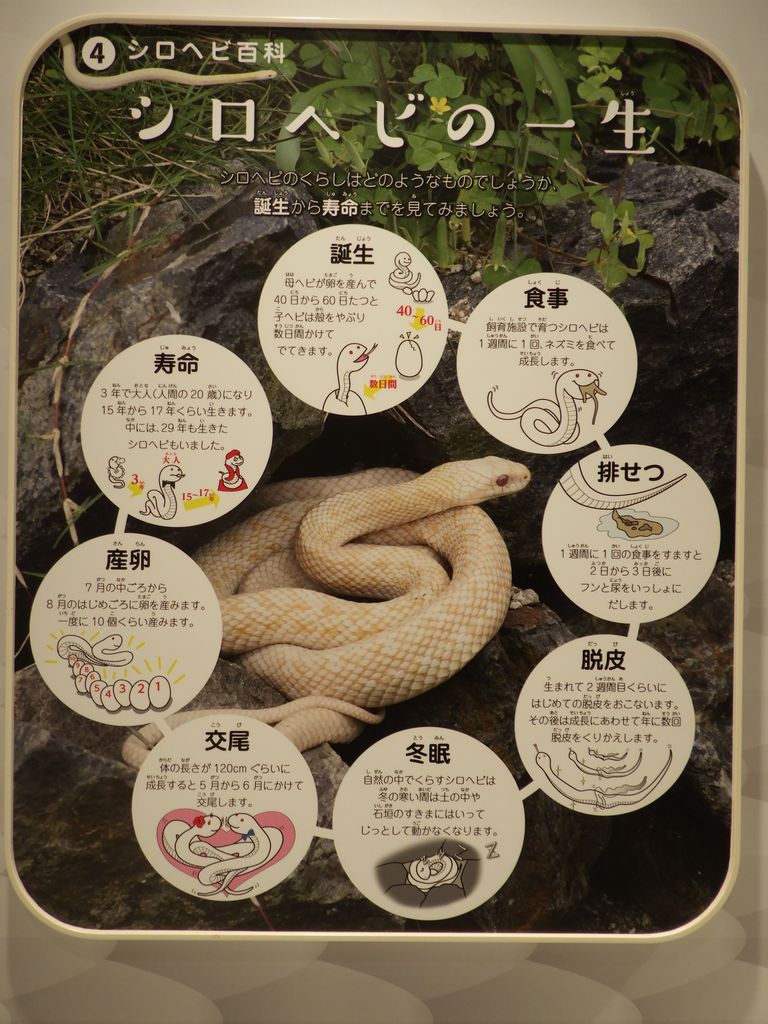 4 シロヘビ百科
シロヘビの一生
シロヘビのくらしはどのようなものでしょうか、
誕生から寿命までを見てみましょう。
誕生
母ヘビが卵を産んで
40日から60日たつと
子ヘビは殻をやぶり
数日間かけて
でてきます。
40~60日
数日間
食事
飼育施設で育つシロヘビは
1週間に1回、ネズミを食べて
成長します。
排せつ
1週間に1回の食事をすますと
2日から3日後に
フンと尿をいっしょに
だします。
脱皮
生まれて2週間目くらいに
はじめての脱皮をおこないます。
その後は成長にあわせて年に数回
脱皮をくりかえします。
冬眠
自然の中でくらすシロヘビは
冬の寒い間は土の中や
石垣のすきまにはいって
じっとして動かなくなります。
Z
交尾
体の長さが120cmぐらいに
成長すると5月から6月にかけて
交尾します。
産卵
7月の中ごろから
8月のはじめごろに卵を産みます。
一度に10個くらい産みます。
10 9 8 7 6 5 4 3 2 1
寿命
3年で大人(人間の20歳)になり
15年から17年くらい生きます。
中には、29年も生きた
シロヘビもいました。
3年
大人
15~17年